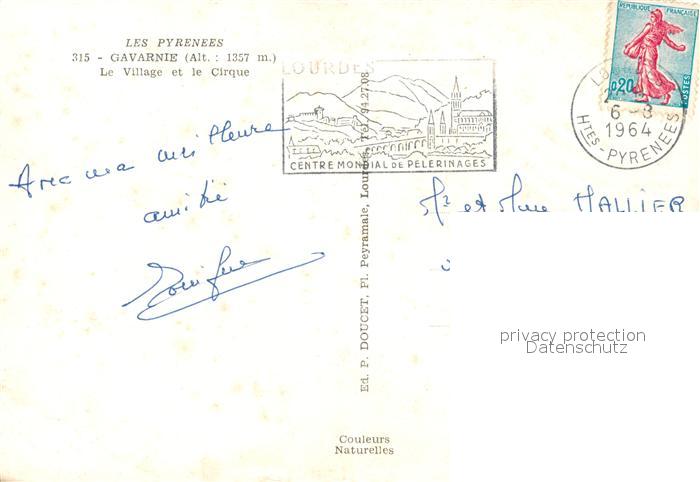 LES PYRENEES
315 - GAVARNIE (Alt. : 1357 m.)
Le Village et le Cirque
LOURDES
CENTRE MONDIAL DE PELERINAGES
REPUBLIQUE FRANÇAISE
0,20
POSTES
6-8
1964
HTES-PYRENEES
Avec ma meilleure
amitié
Mr et Mme HALLIER
Ed. P. DOUCET, Pl. Peyramale, Lourdes, Tél. 94.27.08
privacy protection
Datenschutz
Couleurs
Naturelles